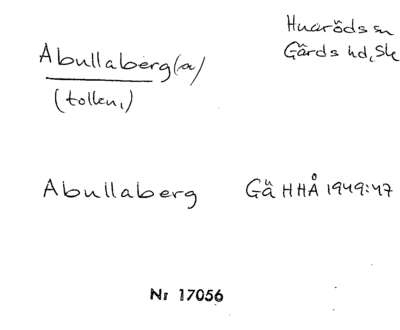 Huaröds sn
Gärds hd, Sk
Abullaberg(a)
(tolkn.)
Abullaberg Gä HHÅ 1949:47
Nr 17056